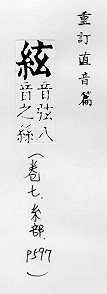 重訂直音篇
絃
音弦八
音之絲
(卷七、糸部、P597)